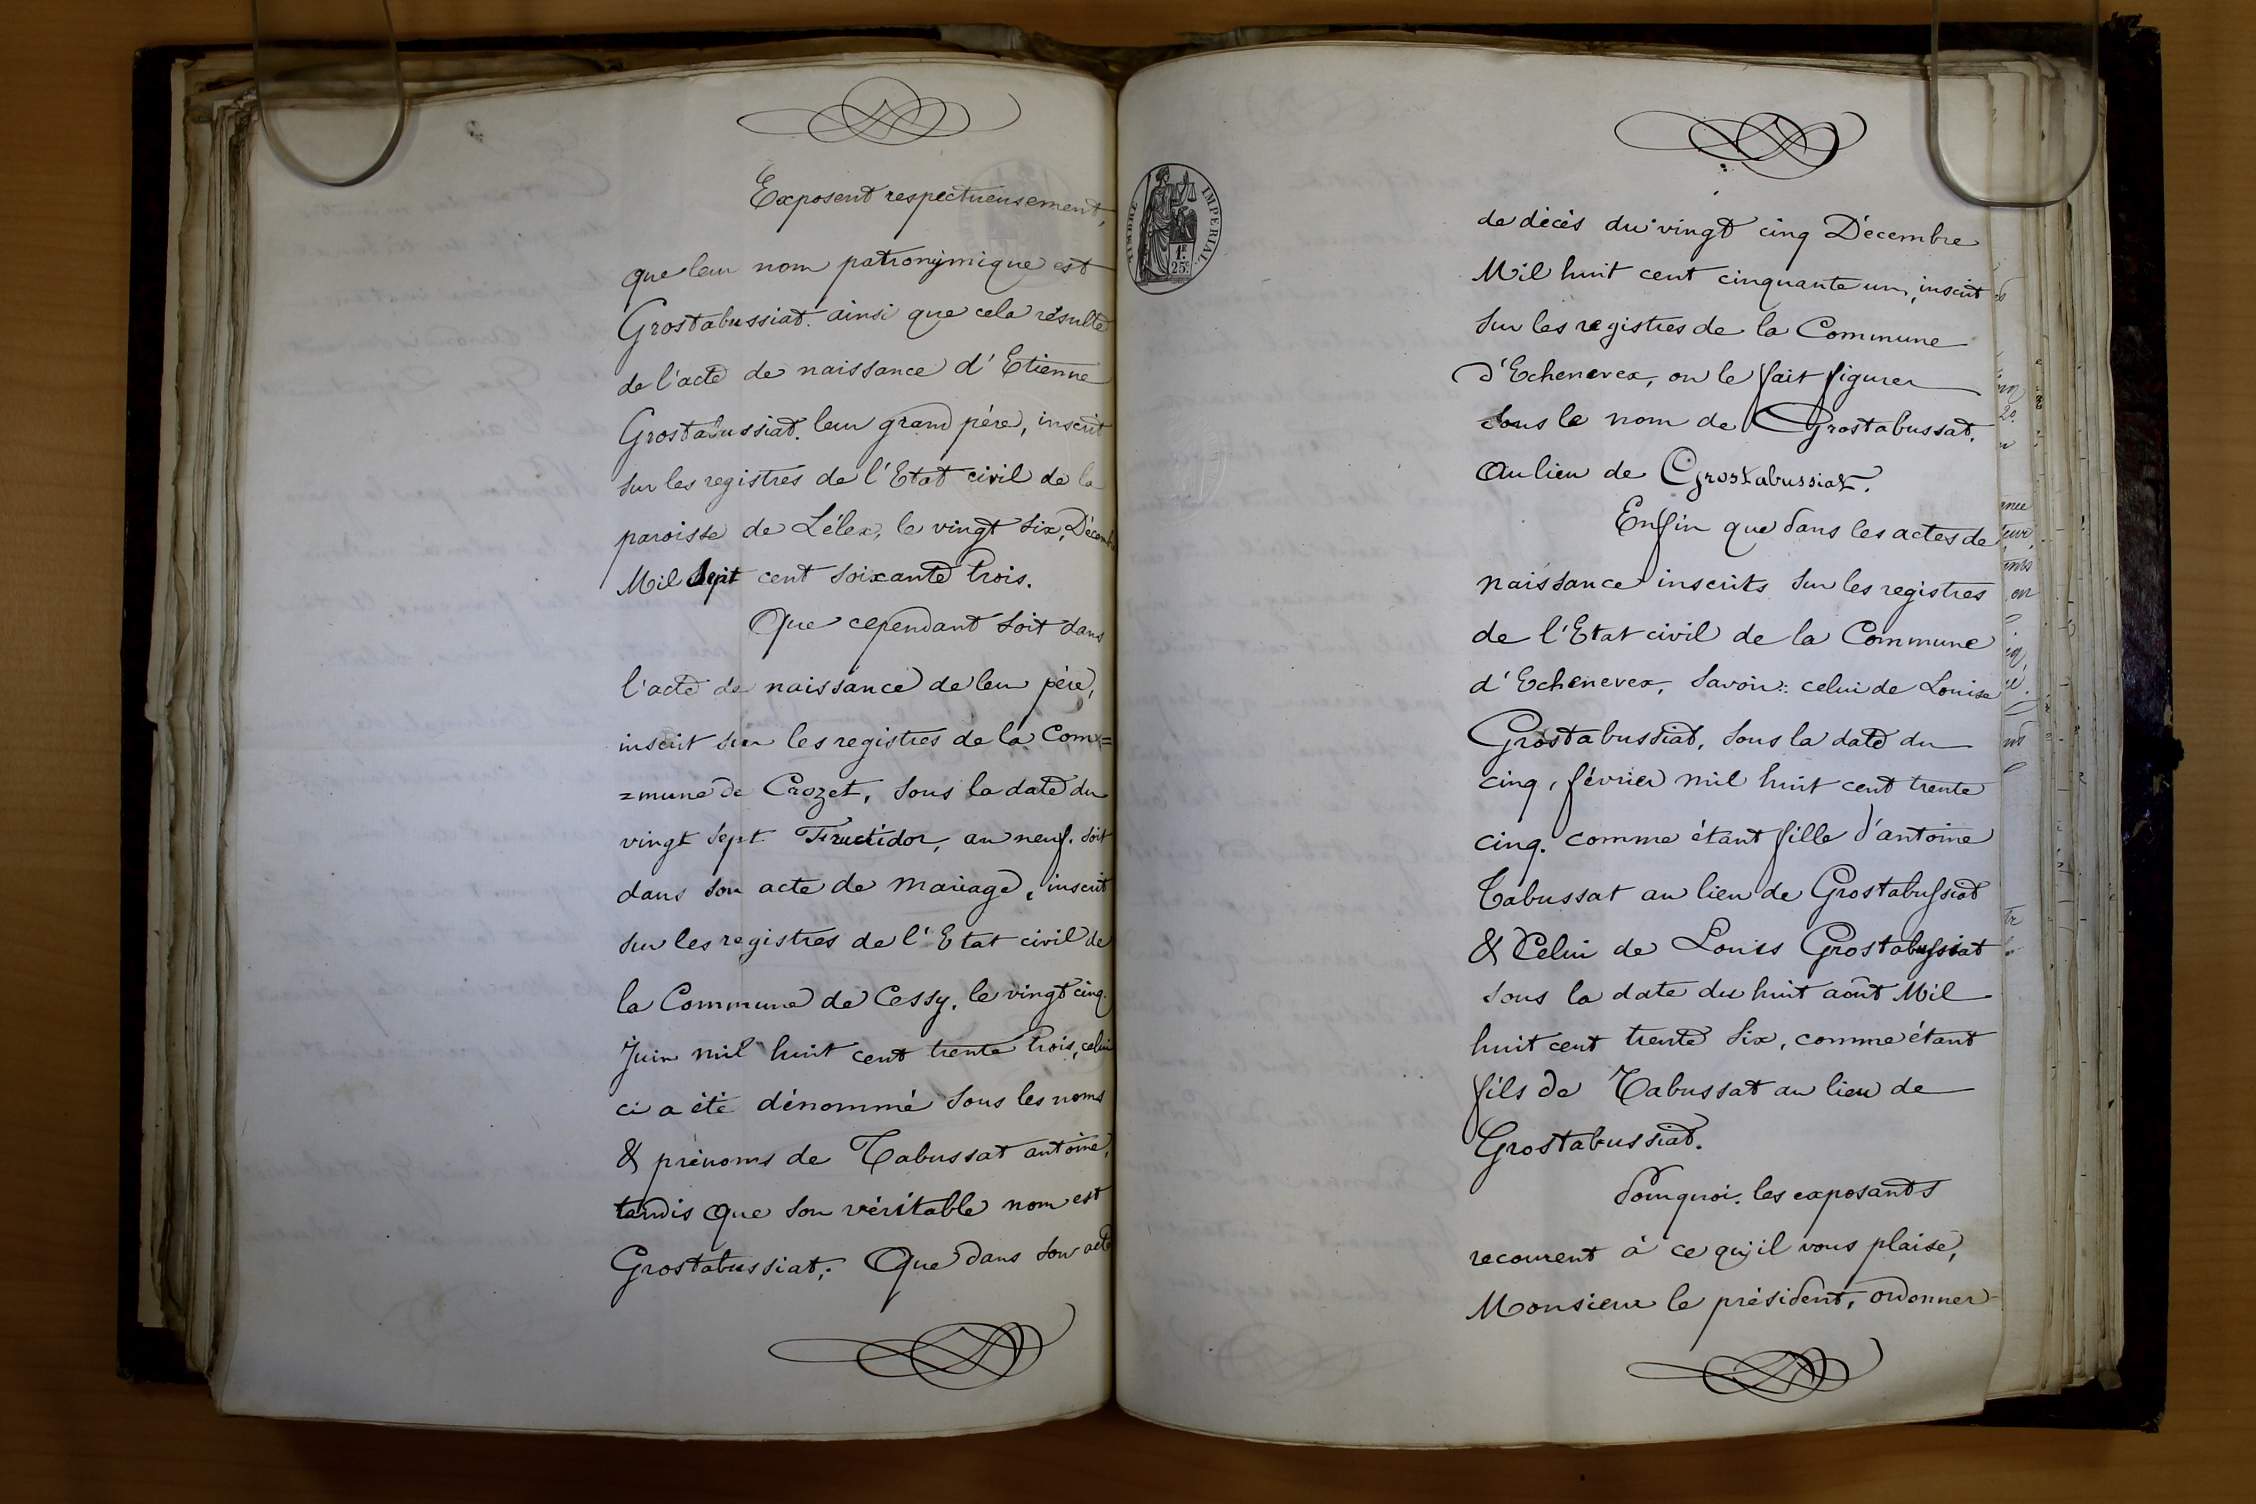 Exposent respectueusement,
que leur nom patronymique est
Grostabussiat. ainsi que cela résulte
de l'acte de naissance d'Etienne
Grostabussiat. leur grand père, inscrit
sur les registres de l'Etat civil de la
paroisse de Lélex, le vingt six, Décembre
Mil Sept cent soixante trois.
Que cependant soit dans
l'acte de naissance de leur père,
inscrit sur les registres de la Com=
=mune de Crozet, sous la date du
vingt sept Fructidor, an neuf. soit
dans son acte de mariage, inscrit
sur les registres de l'Etat civil de
la Commune de Cessy. le vingt cinq
Juin mil huit cent trente trois, celui
ci a été dénommé sous les noms
& prénoms de Tabussat antoine,
tandis que son véritable nom est
Grostabussiat; Que dans son acte
TIMBRE IMPERIAL
1F.
25c
de décès du vingt cinq Décembre
Mil huit cent cinquante un, inscrit
sur les registres de la Commune
d'Echenevex, on le fait figurer
sous le nom de Grostabussat.
au lieu de Grostabussiat.
Enfin que dans les actes de
naissance inscrits sur les registres
de l'Etat civil de la Commune
d'Echenevex, Savoir: celui de Louise
Grostabussiat, sous la date du
cinq, février mil huit cent trente
cinq. comme étant fille d'antoine
Tabussat au lieu de Grostabussiat
& Celui de Louis Grostabussiat
sous la date du huit août Mil
huit cent trente six, comme étant
fils de Tabussat au lieu de
Grostabussiat.
Pourquoi. les exposants
recourent à ce qu'il vous plaise,
Monsieur le président, ordonner